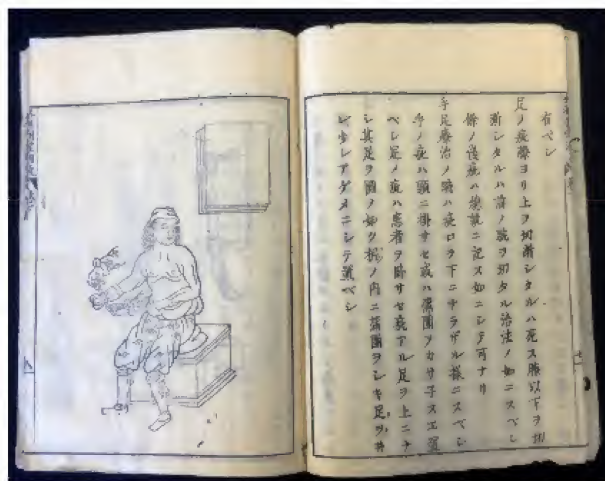 有ベシ
足ノ疵膝ヨリ上ヲ切断シタルハ死ス膝以下ヲ切
断シタルハ前ノ腕ヲ切タル治法ノ如ニスベシ
餘ノ後疵ハ總説ニ記ス如ニシテ可ナリ
手足療治ノ時ハ疵口ヲ下ニサラザル様ニスベシ
手ノ疵ハ頸ニ掛サセ或ハ蒲團ヲカサ子ス工置
ベシ足ノ疵ハ患者ヲ臥サセ疵アル足ヲ上ニナ
シ其足ヲ圖ノ如ク ノ内ニ蒲團ヲシキ足ヲ
レ少シアゲメニシテ置ベシ